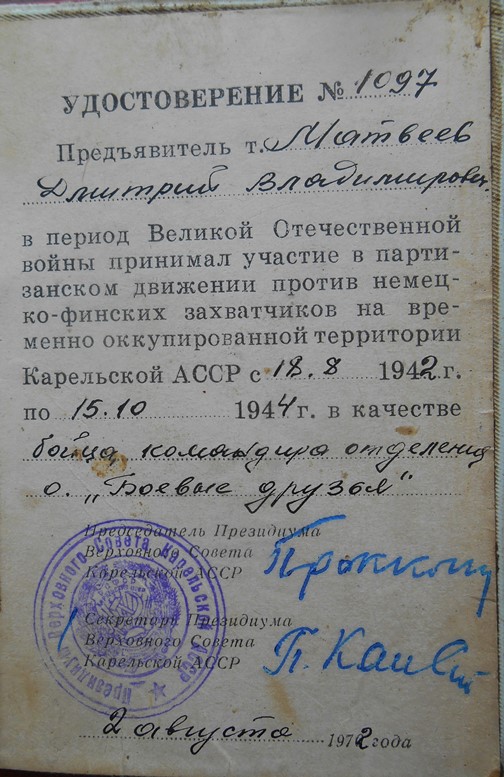 УДОСТОВЕРЕНИЕ № 1097
Предъявитель т. Матвеев
Дмитрий Владимирович
в период Великой Отечественной
войны принимал участие в парти-
занском движении против немец-
ко-финских захватчиков на вре-
менно оккупированной территории
Карельской АССР с 18.8 1942 г.
по 15.10 1944 г. в качестве
бойца, командира отделения
о. „Боевые друзья"
Председатель Президиума
Верховного Совета
Карельской АССР
Секретарь Президиума
Верховного Совета
Карельской АССР
Президиум Верховного Совета Карельской АССР
2 августа 1972 года